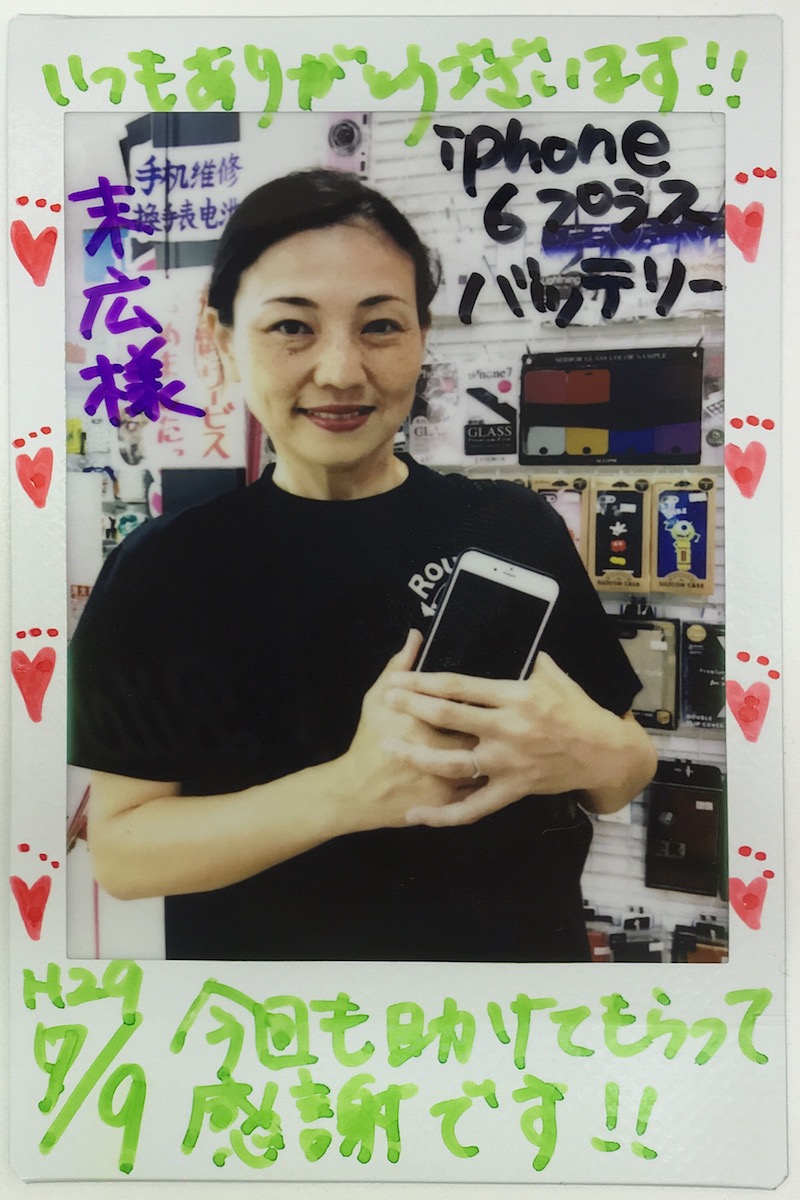 いつもありがとうございます!!
iphone
6プラス
バッテリー
末広様
手机维修
换手表电池
サービス
MIRROR GLASS COLOR SAMPLE
iPhone7
GLASS
GLASS
ROU
SILICON CASE
SILICON CASE
H29
7/9
今回も助けてもらって
感謝です!!